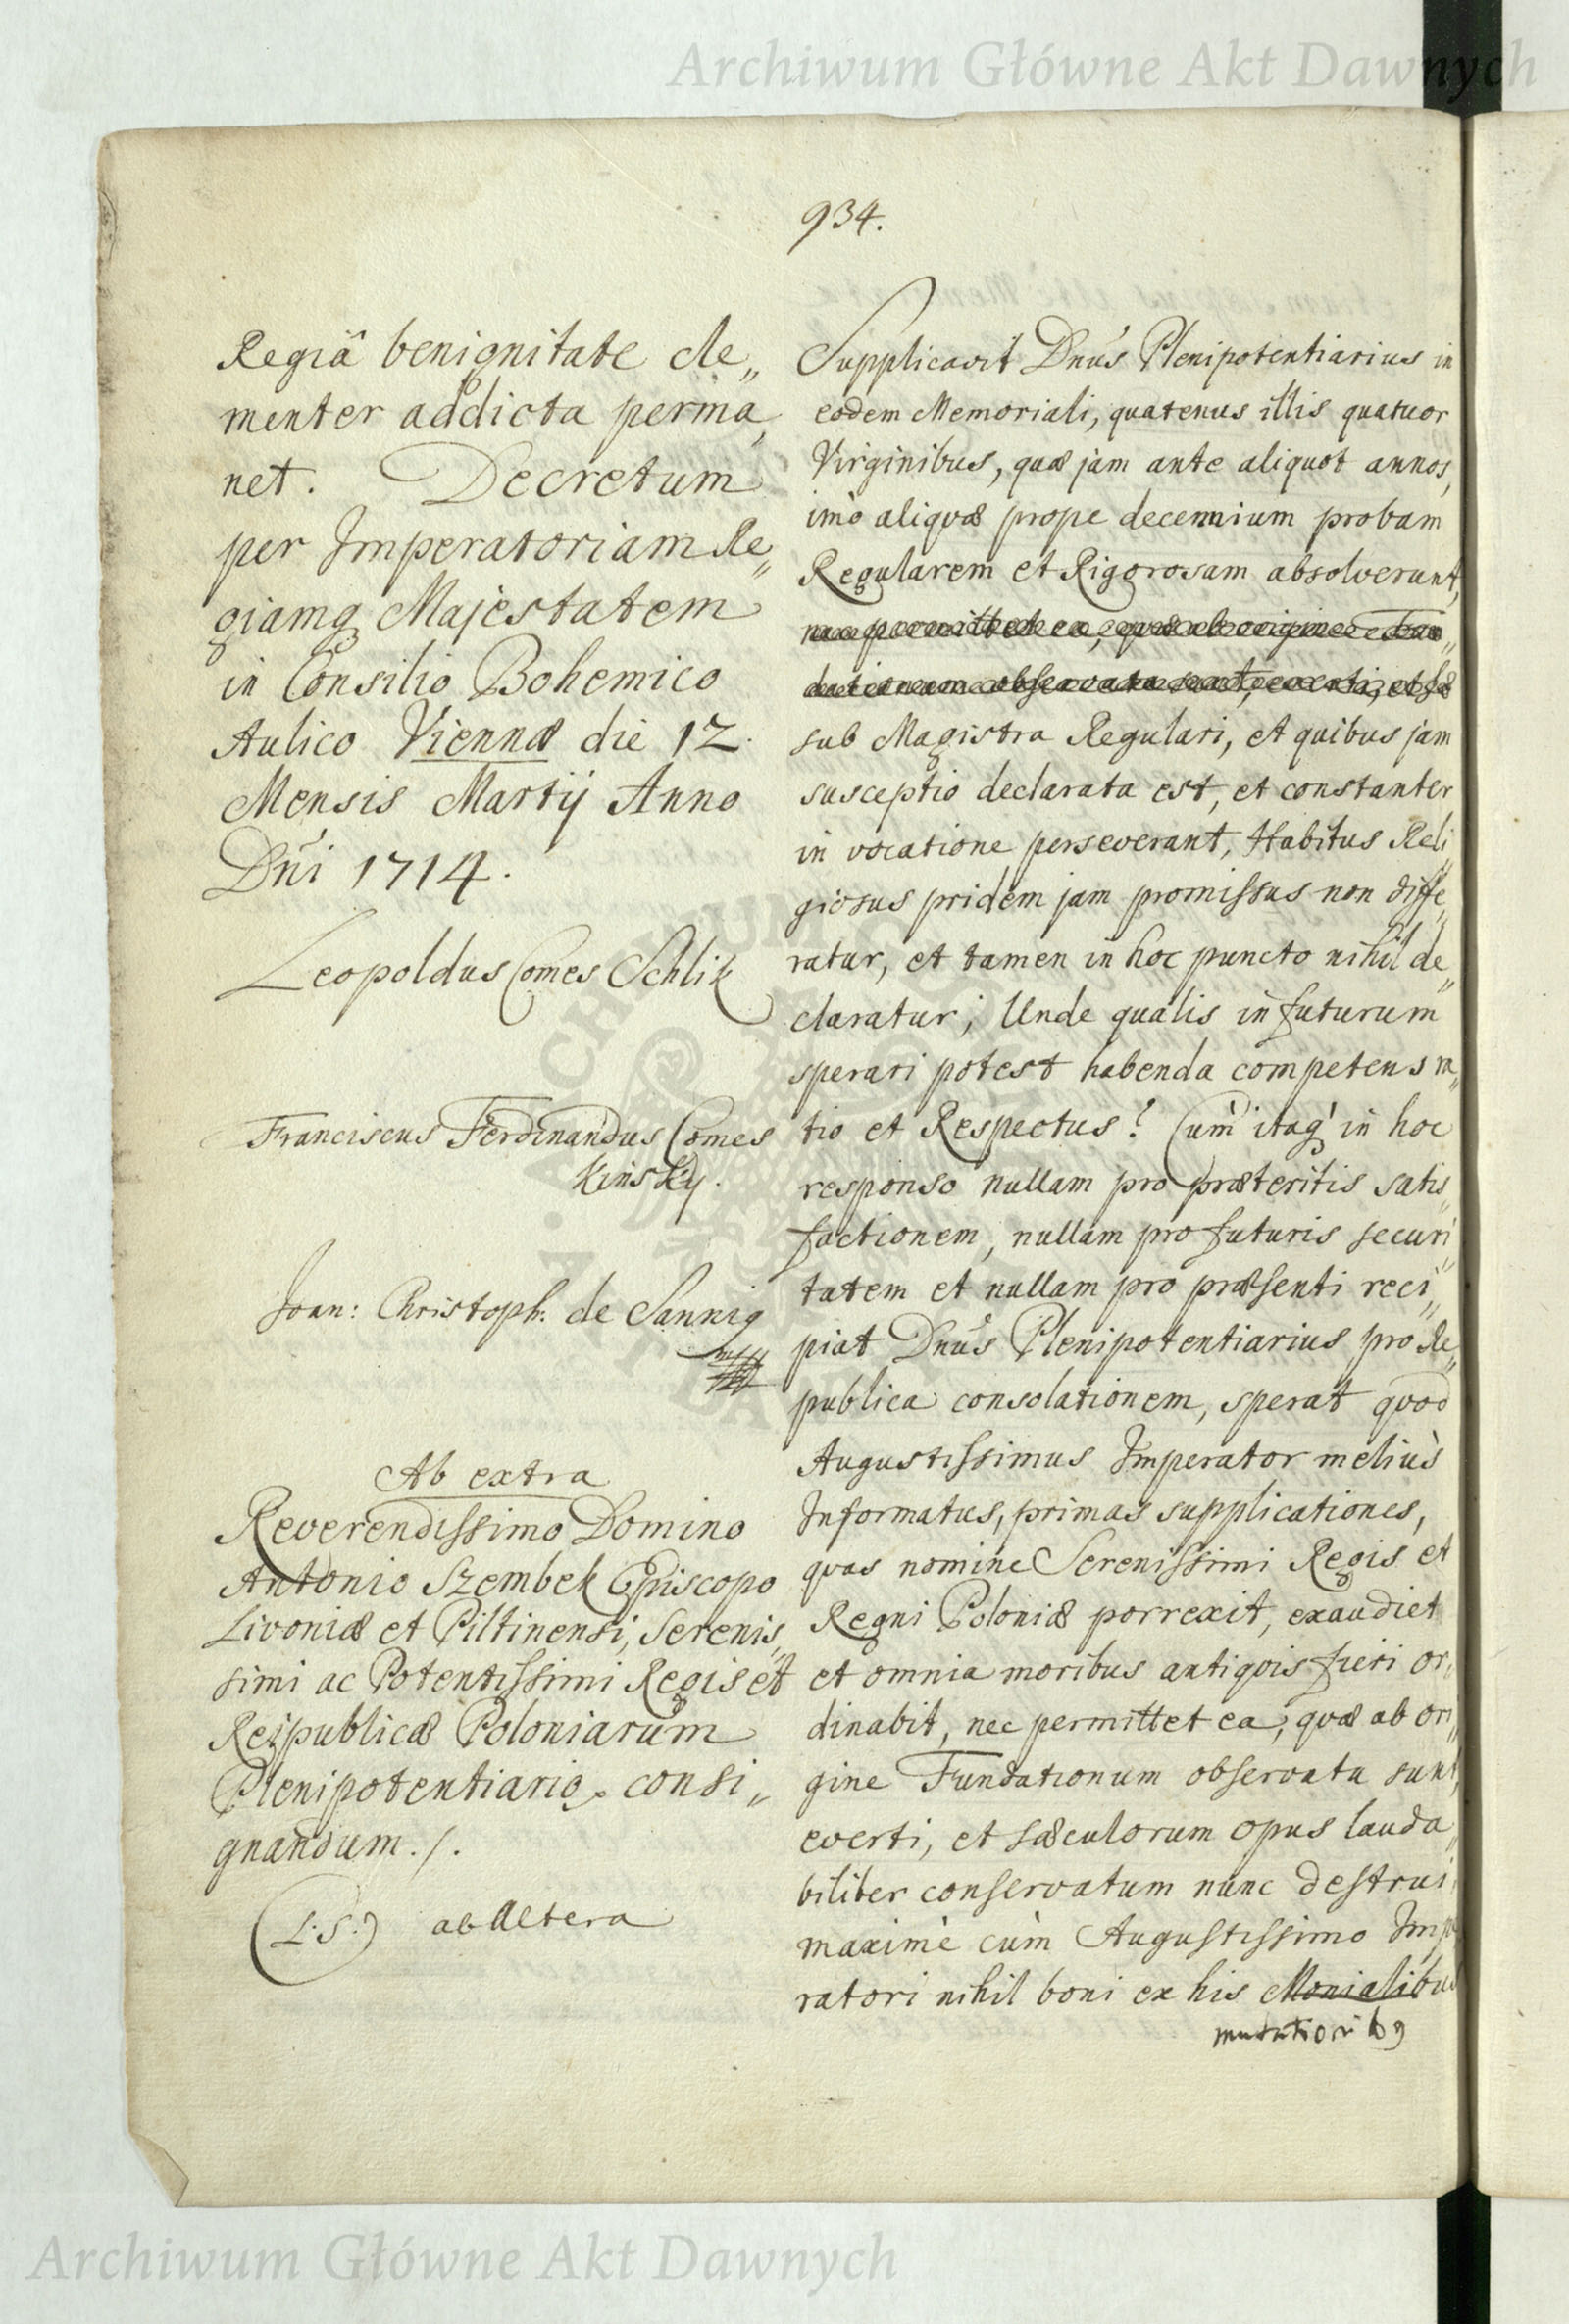 Archiwum Główne Akt Dawnych
934.
Regiâ benignitate cle„
menter addicta perma„
net. Decretum
per Imperatoriam Re„
giamq Majestatem
in Consilio Bohemico
Aulico Viennæ die 12.
Mensis Martij Anno
Dn̄i 1714.
Leopoldus Comes Schlik
Franciscus Ferdinandus Comes
Kinsky.
Joan: Christoph: de Sannig
Ab extra
Reverendissimo Domino
Antonio Szembek Episcopo
Livoniæ et Piltinensi, Serenis„
simi ac Potentissimi Regis et
Reipublicæ Poloniarum
Plenipotentiario consi„
gnandum ./.
(L:S:) ab altera
Supplicavit Dnus Plenipotentiarius in
eodem Memoriali, quatenus illis quatuor
Virginibus, quæ jam ante aliquot annos,
imò aliquæ prope decennium probam
Regularem et Rigorosam absolverunt,
nec permittet ea, quæ ab origine Fun„
dationum observata sunt, everti, et sæ
sub Magistra Regulari, et quibus jam
susceptio declarata est, et constanter
in vocatione perseverant, Habitus Reli„
giosus pridem jam promissus non diffe„
ratur, et tamen in hoc puncto nihil de„
claratur; Unde qualis in futurum
sperari potest habenda competens ra„
tio et Respectus? Cum itaq in hoc
responso nullam pro præteritis satis„
factionem, nullam pro futuris securi„
tatem et nullam pro præsenti reci„
piat Dnus Plenipotentiarius pro Re„
publica consolationem, sperat quod
Augustissimus Imperator meliùs
Informatus, primas supplicationes,
quas nomine Serenissimi Regis et
Regni Poloniæ porrexit, exaudiet
et omnia moribus antiquis fieri or„
dinabit, nec permittet ea, quæ ab ori„
gine Fundationum observata sunt,
everti, et sæculorum opus lauda„
biliter conservatum nunc destrui,
maximè cùm Augustissimo Impe
ratori nihil boni ex his Monialibus
mutationib9
Archiwum Główne Akt Dawnych